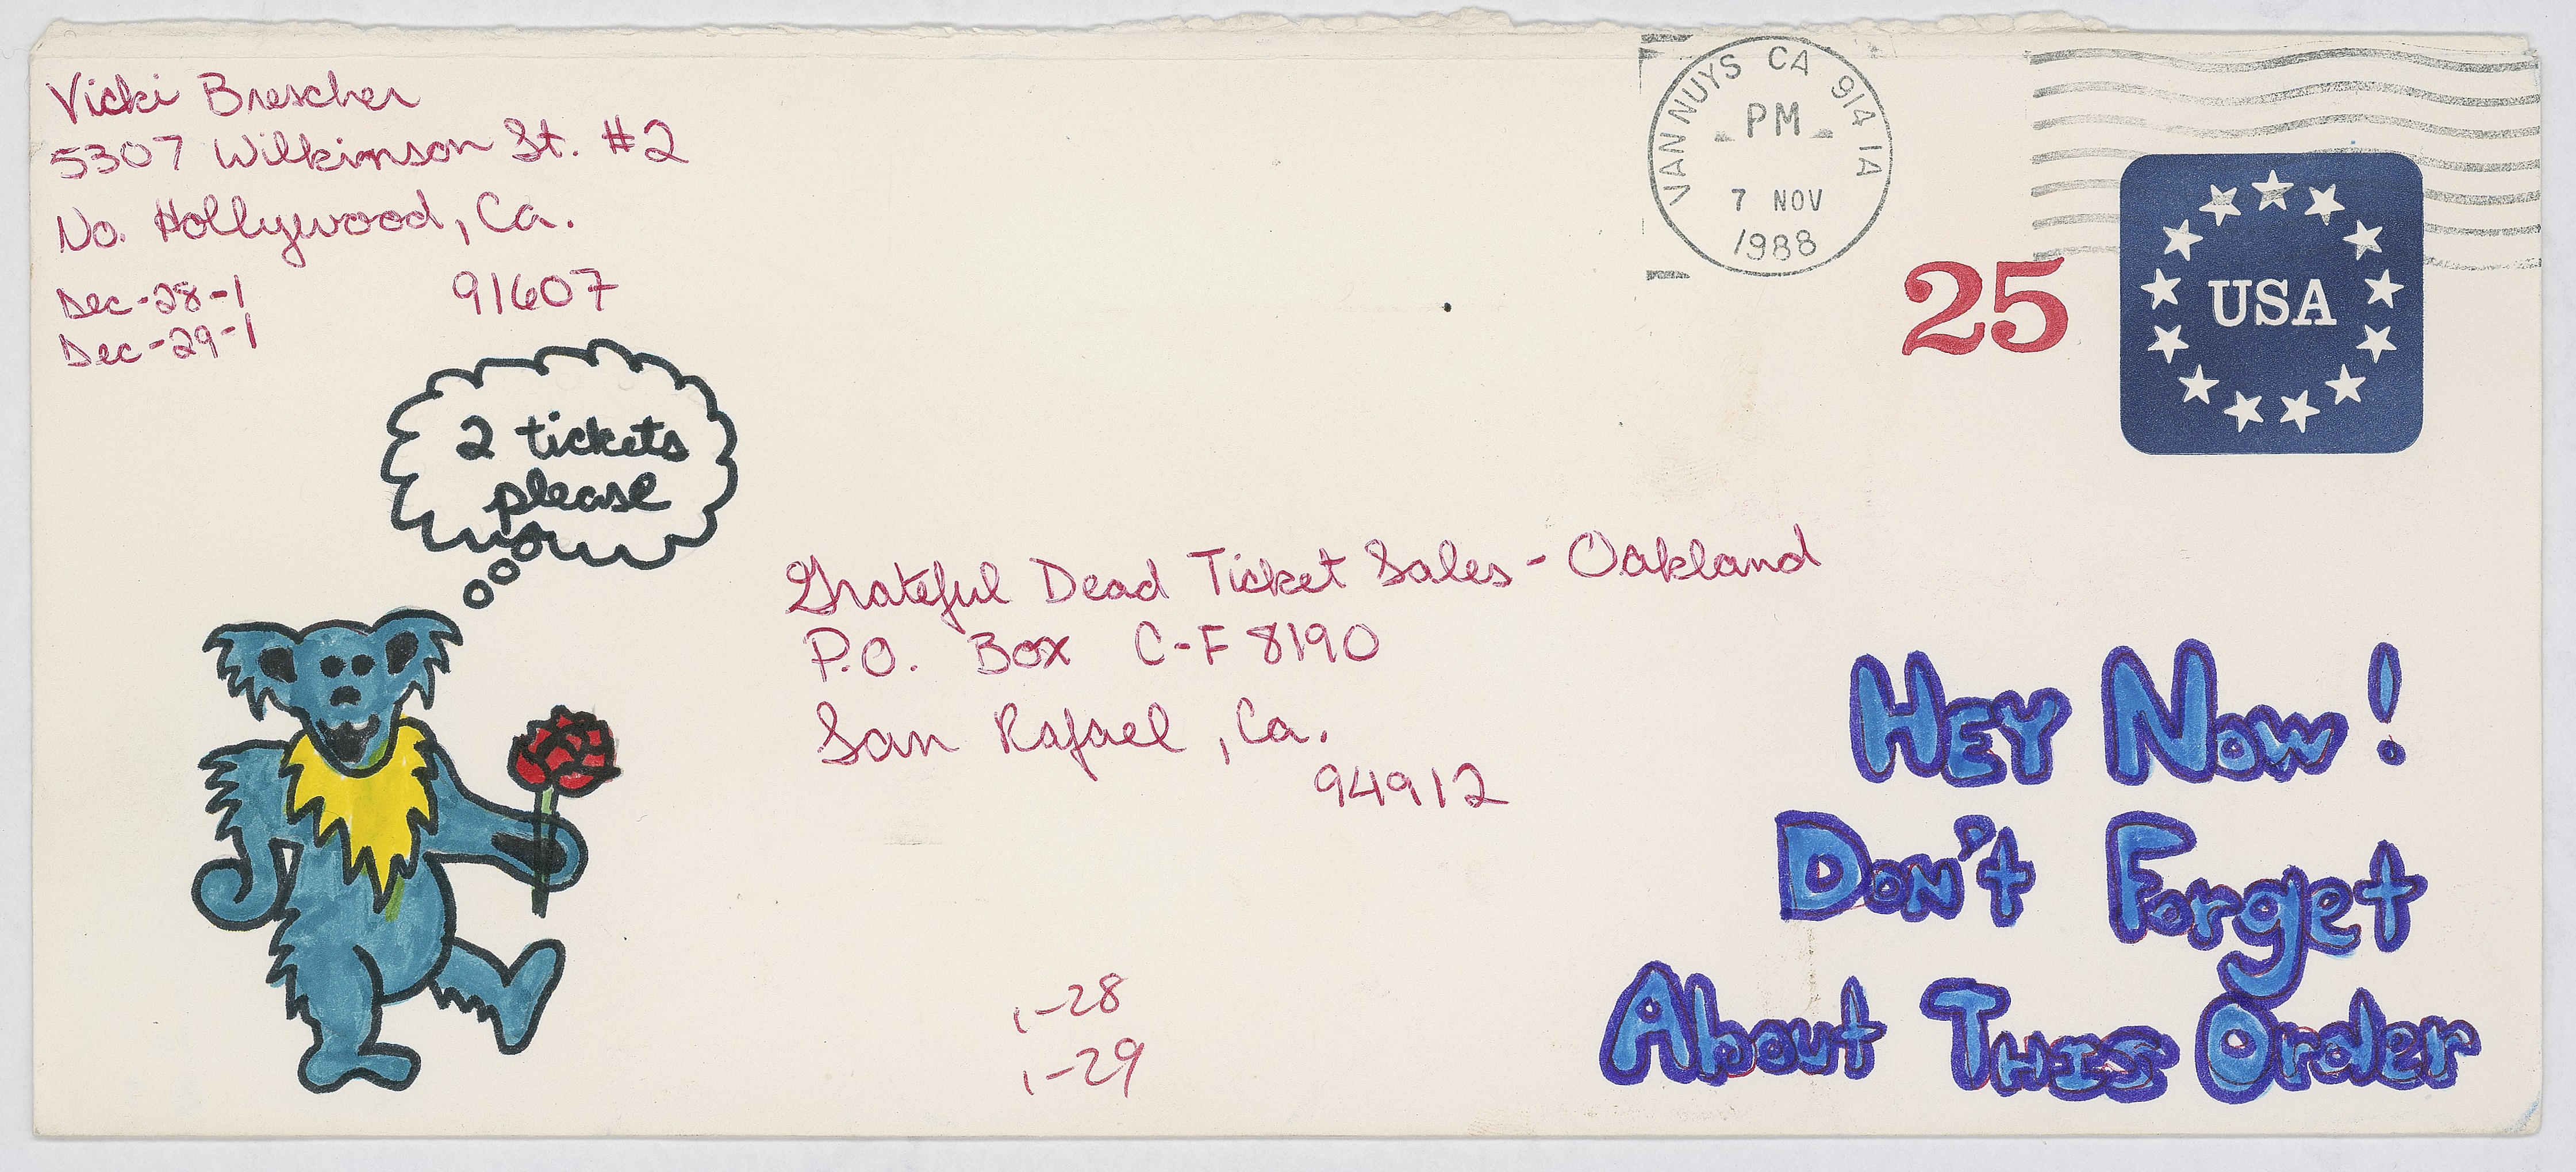 Vicki Brescher
5307 Wilkinson St. #2
No. Hollywood, Ca.
91607
Dec-28-1
Dec-29-1
VAN NUYS CA 914 1A
PM
7 NOV
1988
25
USA
2 tickets
please
Grateful Dead Ticket Sales - Oakland
P.O. Box C-F 8190
San Rafael, Ca.
94912
Hey Now!
Don't Forget
About This Order
1-28
1-29